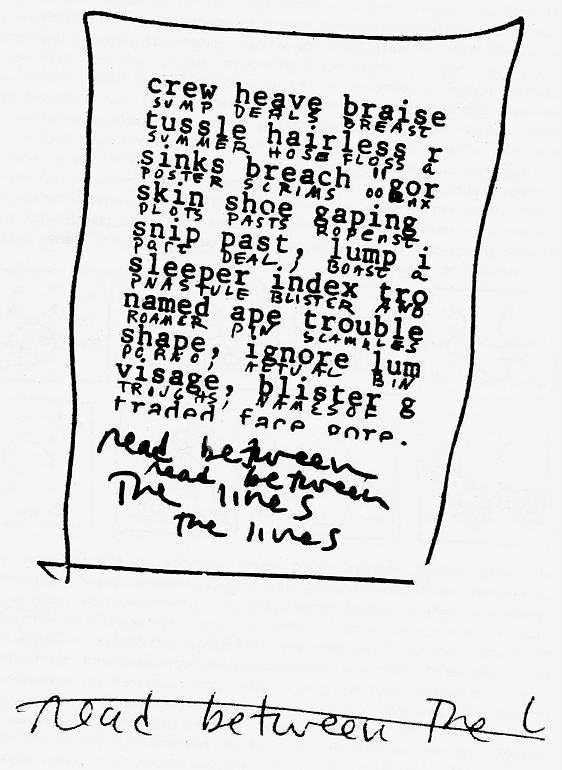 crew heave braise
SUMP DEALS BREAST
tussle hairless r
SUMMER HOSE FLOSS a
sinks breach gor
POSTER SCRIMS
skin shoe gaping
PLOTS PASTS
snip past, lump i
PART DEAL, BOAST a
sleeper index tro
BLISTER AND
named ape trouble
ROAMER PIN
shape, ignore lum
ACTUAL BIN
visage, blister g
TROUGHS,
traded face
read between
read between
The lines
the lines
read between The L